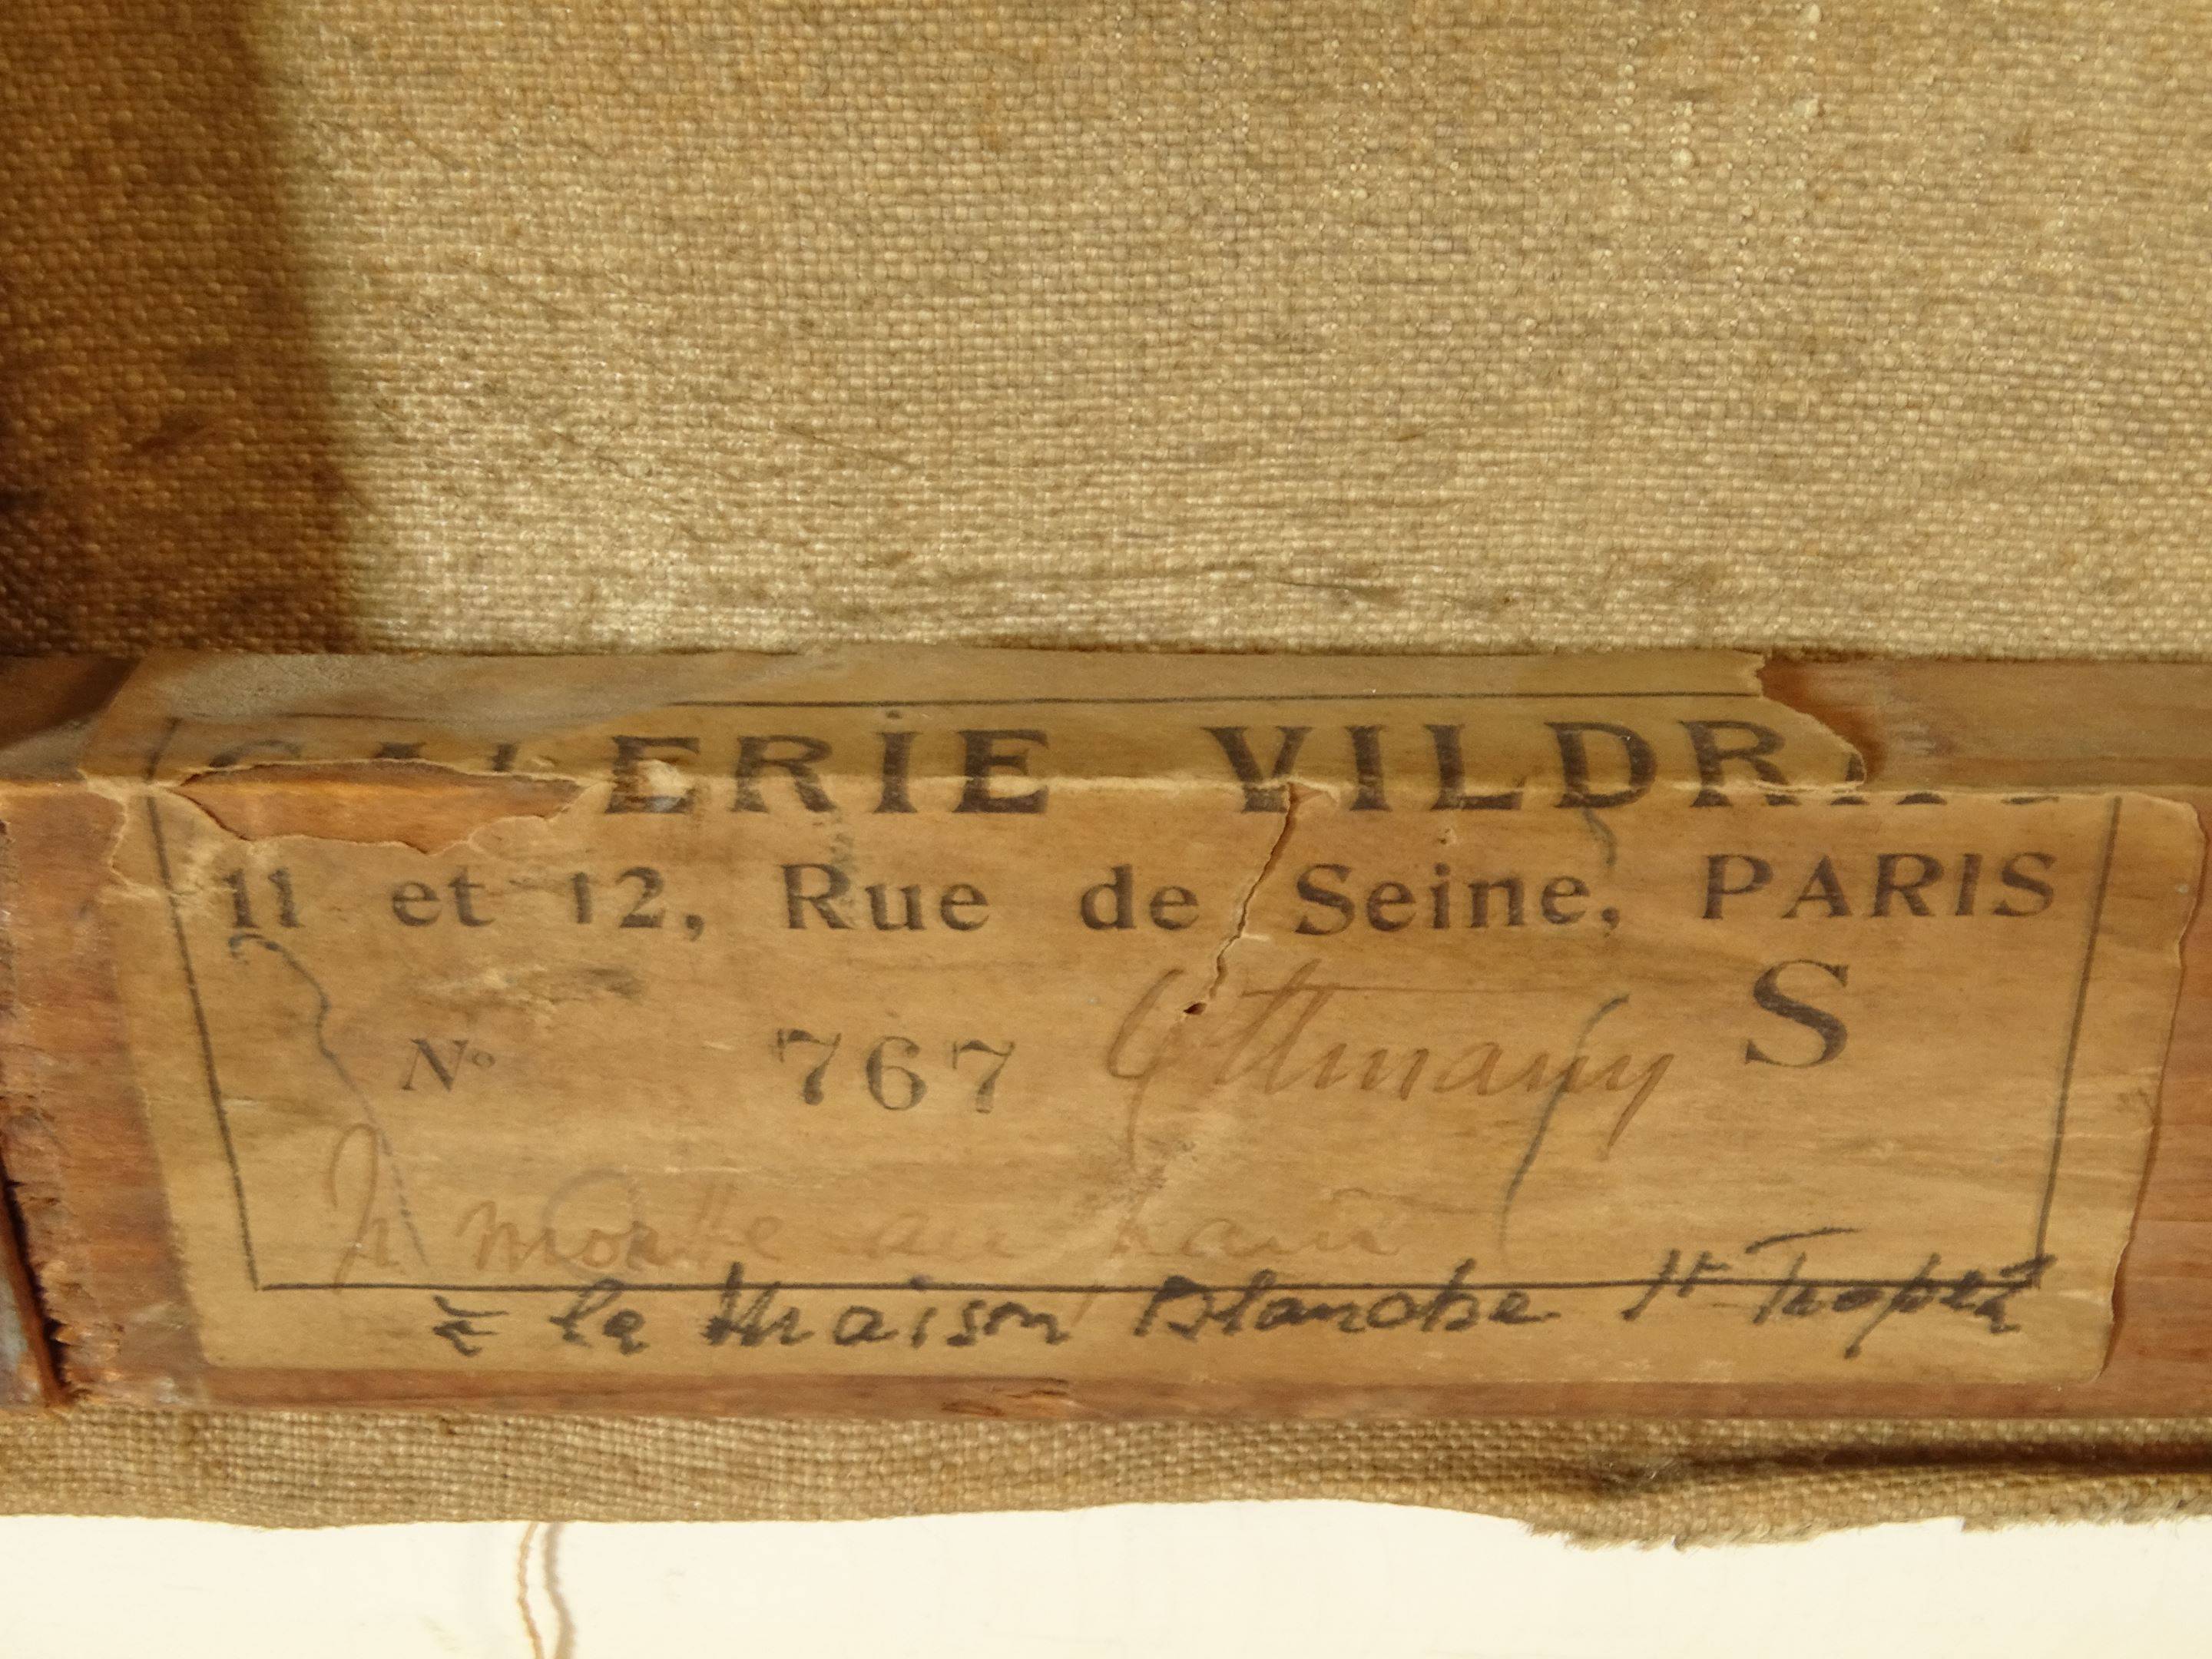 GALERIE VILDRAC
11 et 12, Rue de Seine, PARIS
No 767 Ottmann S
N morte au
à la Maison Blanche St Tropez